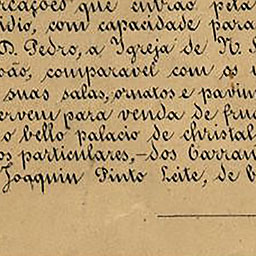 rcações que entrão pela
idio, com capacidade para
D. Pedro, a Igreja de N. S
oão, comparavel com os
suas salas, ornatos e pavim
ervem para venda de fruc
o bello palacio de christal
os particulares,—dos Carran
Joaquim Pinto Leite, de b